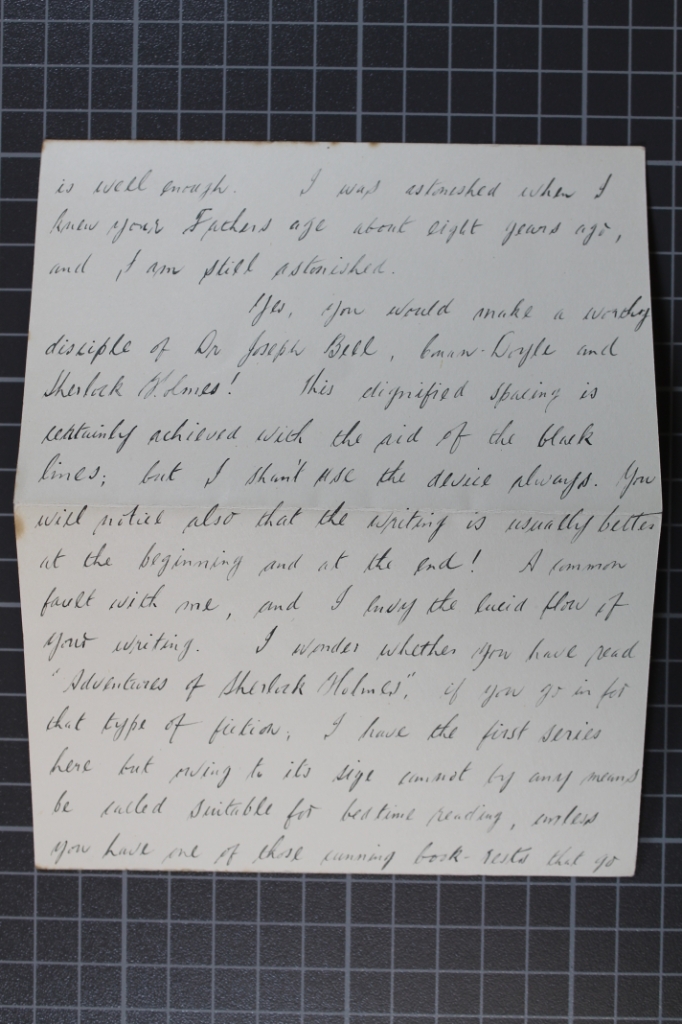 is well enough. I was astonished when I
knew your Fathers age about eight years ago,
and I am still astonished.
Yes, you would make a worthy
disciple of Dr Joseph Bell, Conan-Doyle and
Sherlock Holmes! This dignified spacing is
certainly achieved with the aid of the black
lines; but I shan't use the device always. You
will notice also that the writing is usually better
at the beginning and at the end! A common
fault with me, and I envy the lucid flow of
your writing. I wonder whether you have read
"Adventures of Sherlock Holmes", if you go in for
that type of fiction; I have the first series
here but owing to its size cannot by any means
be called suitable for bedtime reading, unless
you have one of those cunning book-rests that go